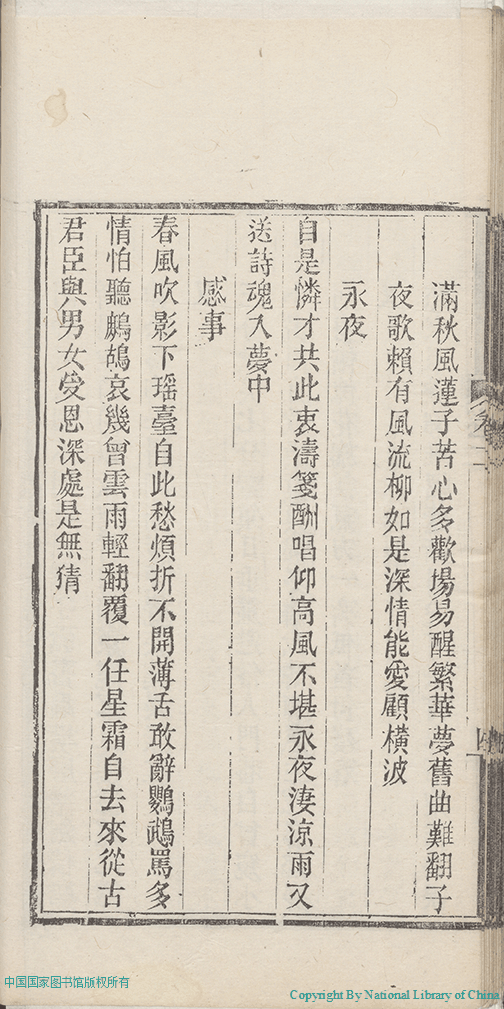 滿秋風蓮子苦心多歡場易醒繁華夢舊曲難翻子
夜歌賴有風流柳如是深情能愛顧橫波
永夜
自是憐才共此衷濤箋酬唱仰高風不堪永夜淒涼雨又
送詩魂入夢中
感事
春風吹影下瑤臺自此愁煩折不開薄舌敢辭鸚鵡罵多
情怕聽鷓鴣哀幾曾雲雨輕翻覆一任星霜自去來從古
君臣與男女受恩深處是無猜
中国国家图书馆版权所有
Copyright By National Library of China